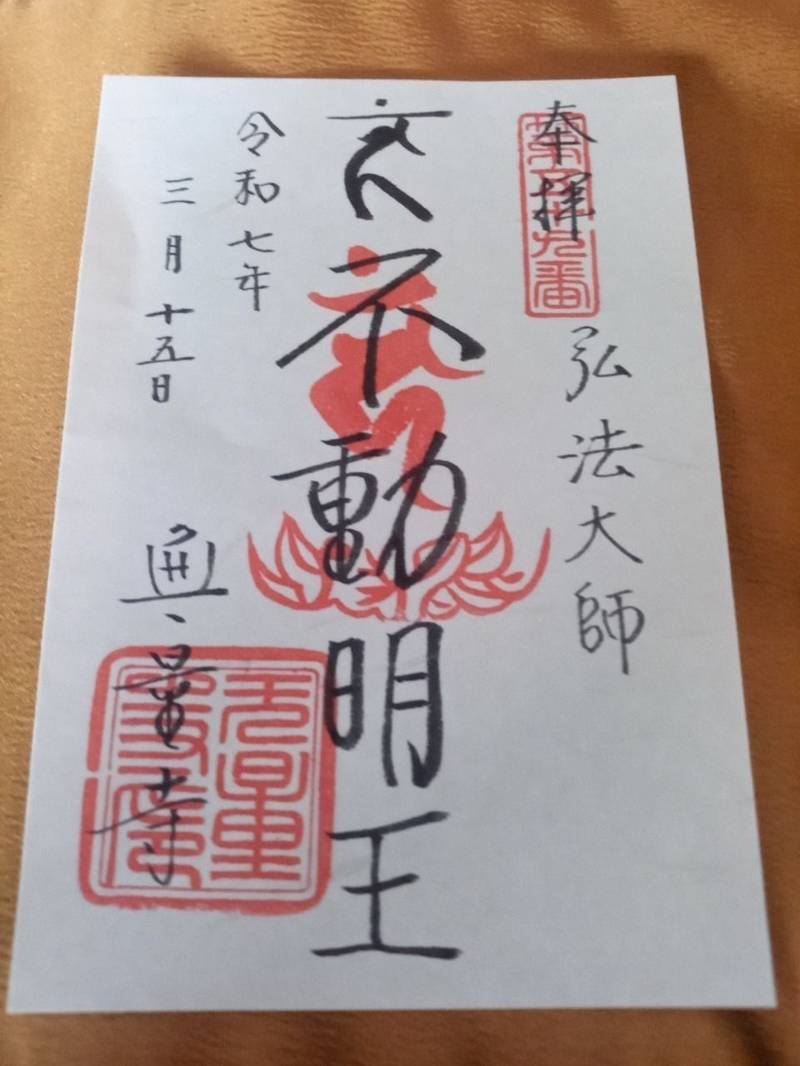 奉拝
弘法大師
不動明王
令和七年
三月十五日
無量寺